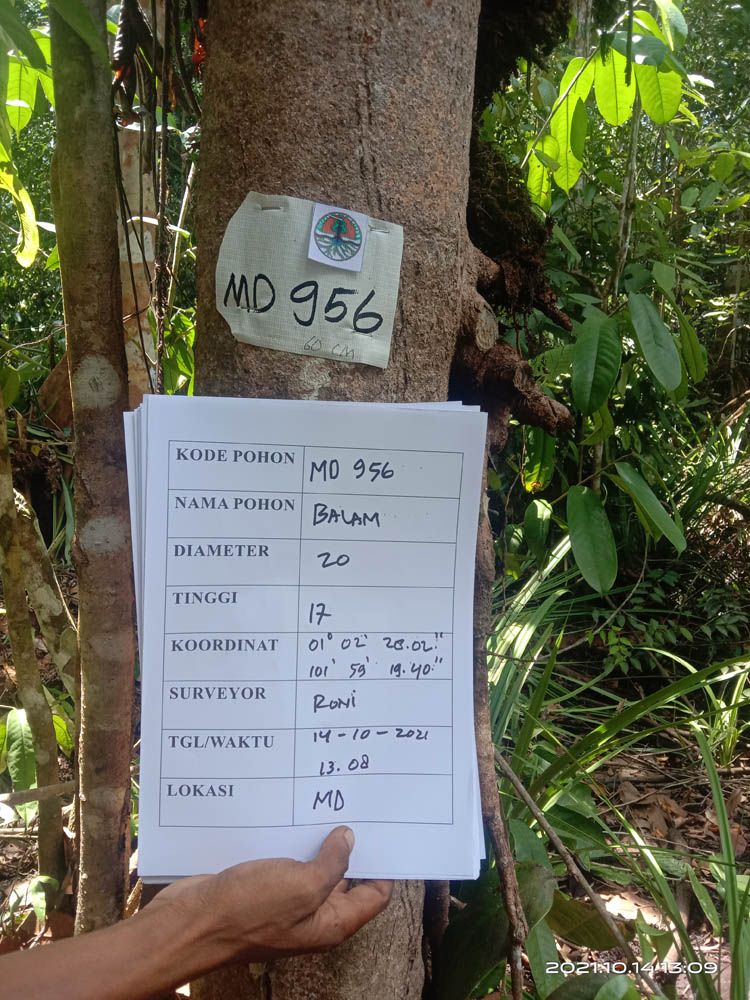 MD 956
60 CM
KODE POHON MD 956
NAMA POHON BALAM
DIAMETER 20
TINGGI 17
KOORDINAT 01° 02' 28.02"
101' 59' 19.40"
SURVEYOR RONI
TGL/WAKTU 14-10-2021
13.08
LOKASI MD
2021.10.14 13:09